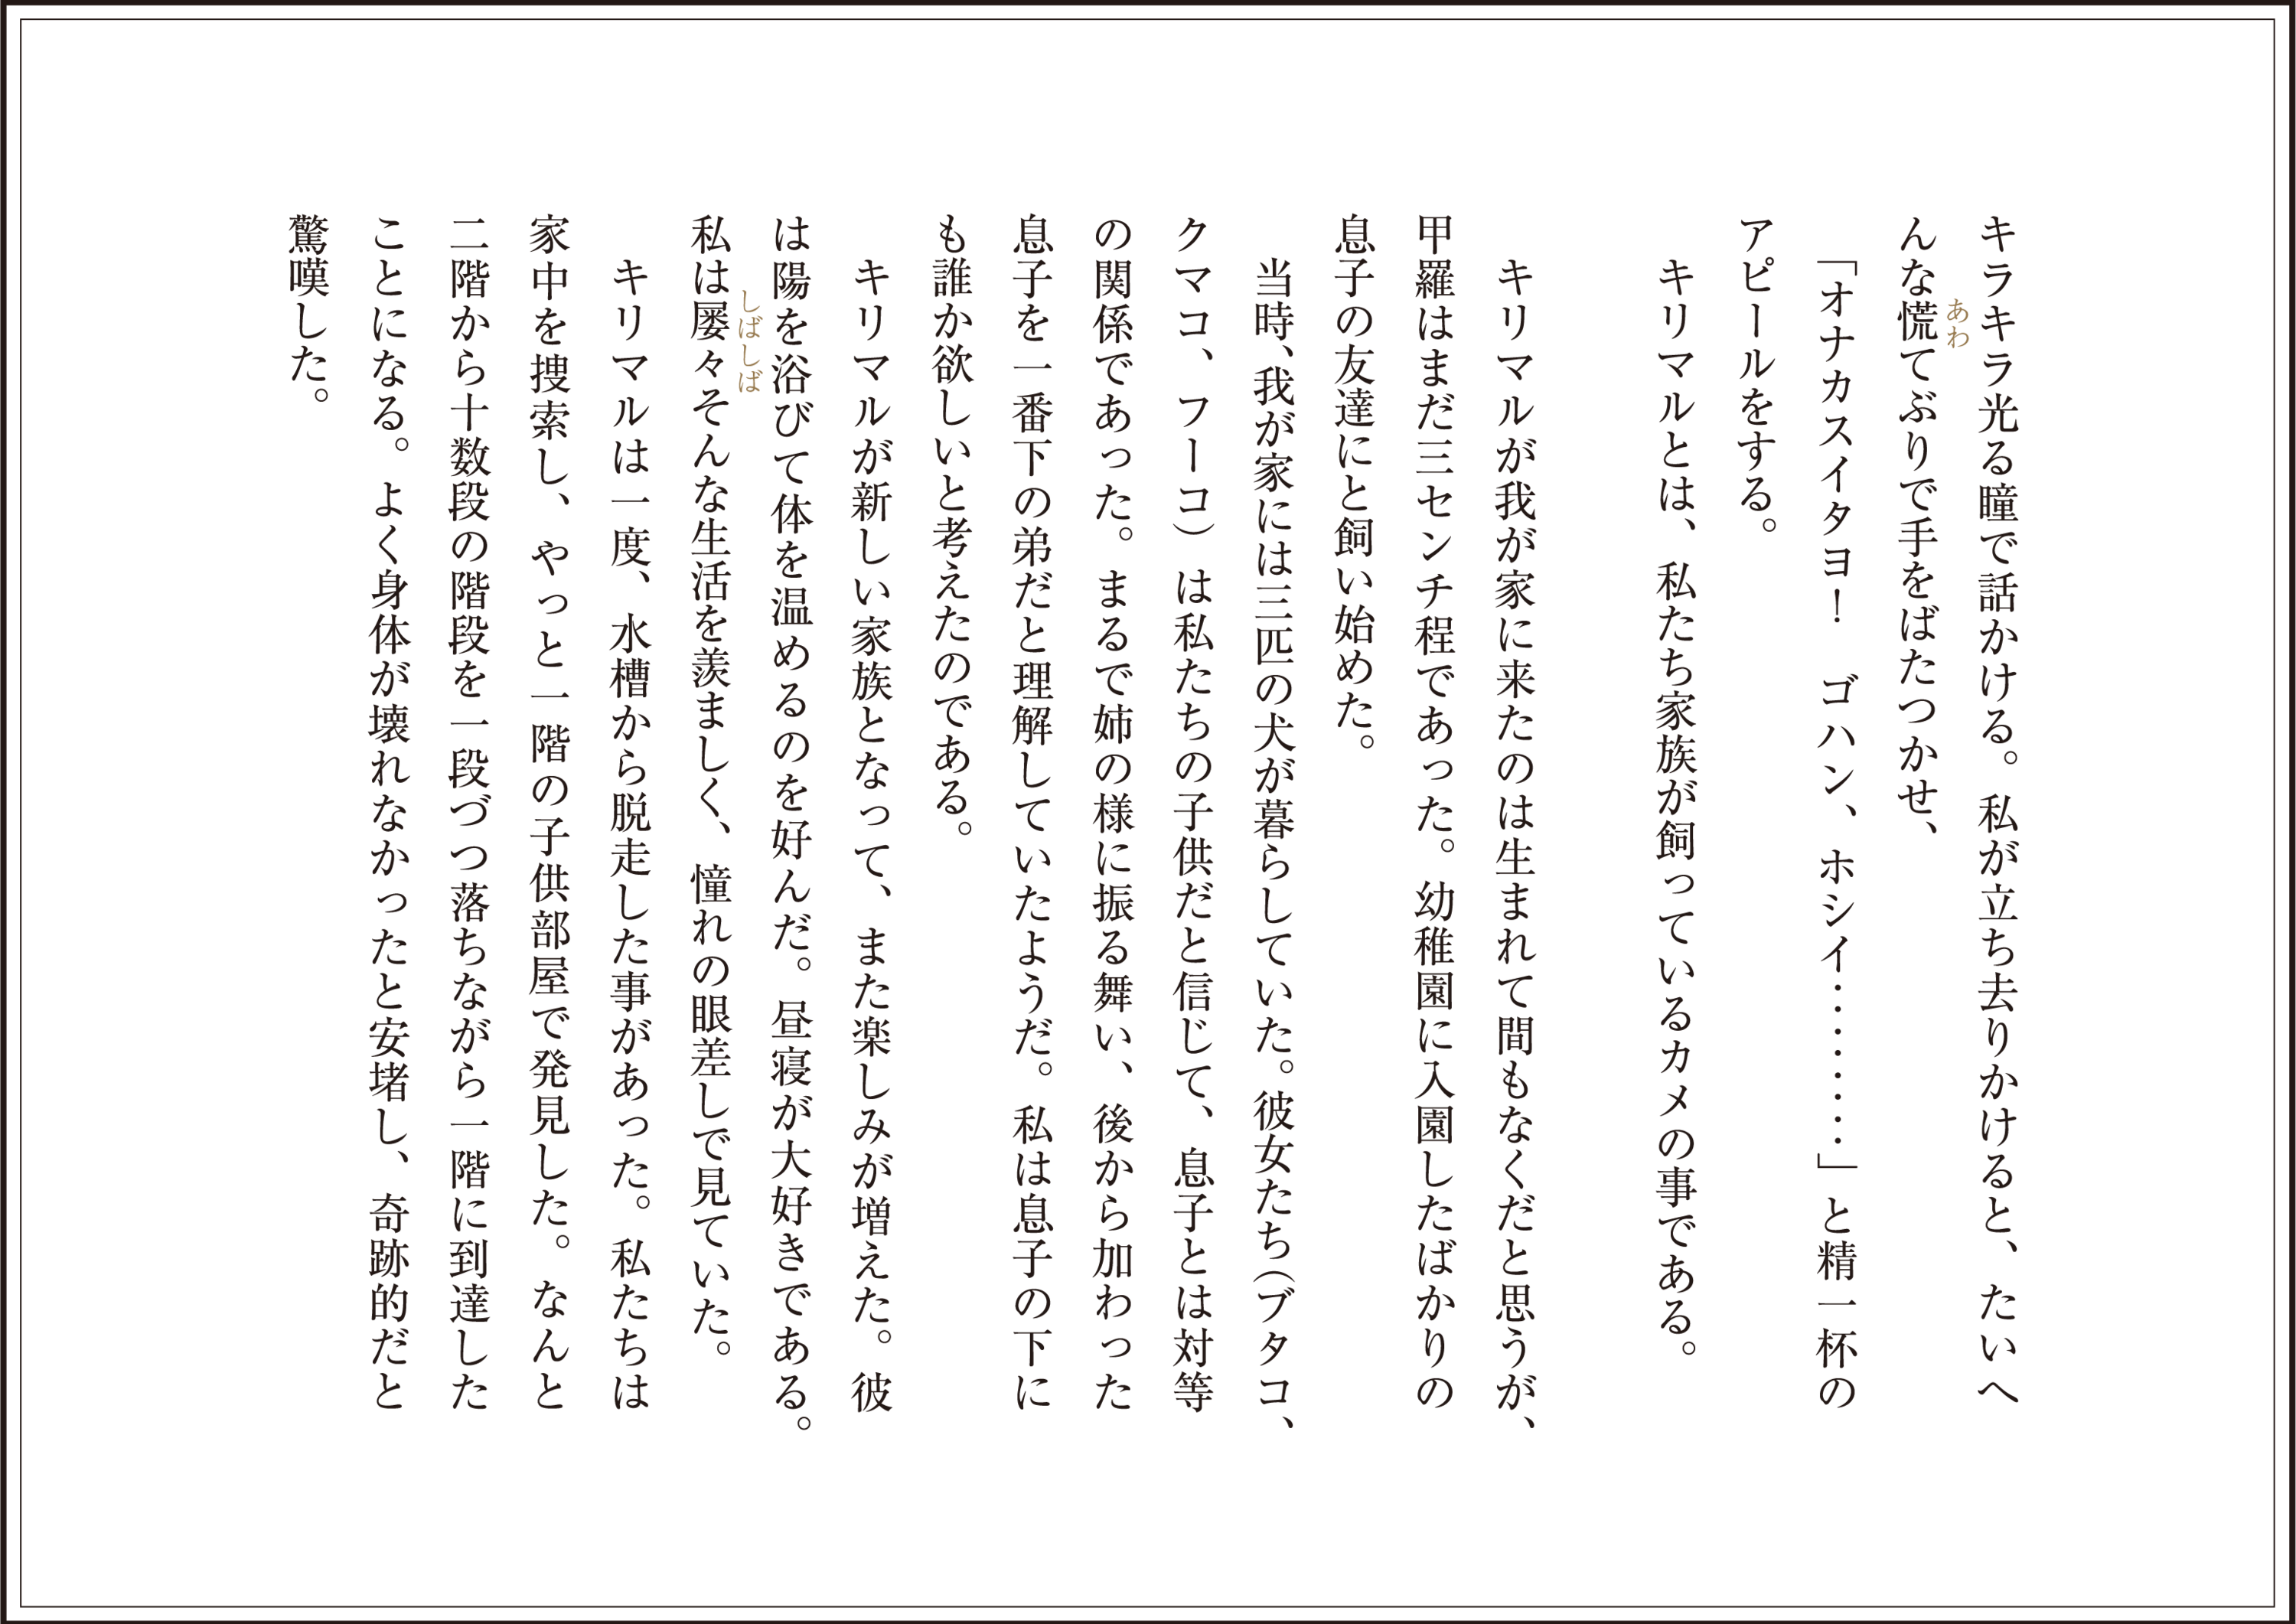 キラキラ光る瞳で話かける。私が立ち去りかけると、たいへ
んな慌てぶりで手をばたつかせ、
あわ
「オナカスイタヨ！　ゴハン、ホシイ………………」と精一杯の
アピールをする。
キリマルとは、私たち家族が飼っているカメの事である。
キリマルが我が家に来たのは生まれて間もなくだと思うが、
甲羅はまだ三センチ程であった。幼稚園に入園したばかりの
息子の友達にと飼い始めた。
当時、我が家には三匹の犬が暮らしていた。彼女たち（ブタコ、
クマコ、フーコ）は私たちの子供だと信じて、息子とは対等
の関係であった。まるで姉の様に振る舞い、後から加わった
息子を一番下の弟だと理解していたようだ。私は息子の下に
も誰か欲しいと考えたのである。
キリマルが新しい家族となって、また楽しみが増えた。彼
は陽を浴びて体を温めるのを好んだ。昼寝が大好きである。
私は屡々そんな生活を羨ましく、憧れの眼差しで見ていた。
しばしば
キリマルは一度、水槽から脱走した事があった。私たちは
家中を捜索し、やっと一階の子供部屋で発見した。なんと
二階から十数段の階段を一段づつ落ちながら一階に到達した
ことになる。よく身体が壊れなかったと安堵し、奇跡的だと
驚嘆した。